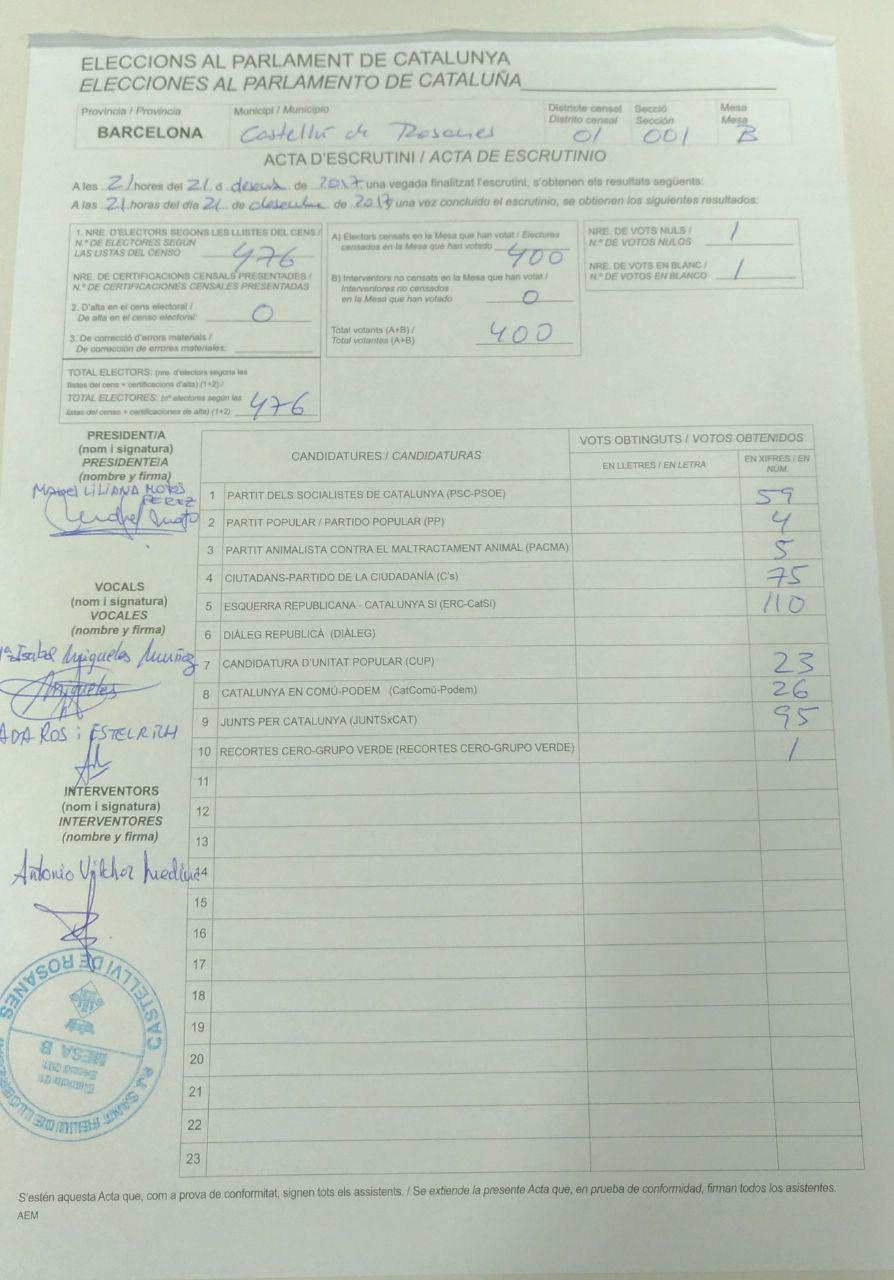 ELECCIONS AL PARLAMENT DE CATALUNYA
ELECCIONES AL PARLAMENTO DE CATALUÑA
Província / Provincia
BARCELONA
Municipi / Municipio
Castellví de Rosanes
Districte censal
Distrito censal
01
Secció
Sección
001
Mesa
Mesa
B
ACTA D'ESCRUTINI / ACTA DE ESCRUTINIO
A les 21 hores del 21 d desemb. de 2017, una vegada finalitzat l'escrutini, s'obtenen els resultats següents:
A las 21 horas del día 21 de desembre de 2017 y una vez concluido el escrutinio, se obtienen los siguientes resultados:
1. NRE. D'ELECTORS SEGONS LES LLISTES DEL CENS /
N.º DE ELECTORES SEGÚN
LAS LISTAS DEL CENSO 476
NRE. DE CERTIFICACIONS CENSALS PRESENTADES /
N.º DE CERTIFICACIONES CENSALES PRESENTADAS
2. D'alta en el cens electoral /
De alta en el censo electoral: 0
3. De correcció d'errors materials /
De corrección de errores materiales:
TOTAL ELECTORS: (nre. d'electors segons les
llistes del cens + certificacions d'alta) (1+2) /
TOTAL ELECTORES: (nº electores según las
listas del censo + certificaciones de alta) (1+2) 476
A) Electors censats en la Mesa que han votat / Electores
censados en la Mesa que han votado 400
B) Interventors no censats en la Mesa que han votat /
Interventores no censados
en la Mesa que han votado 0
Total votants (A+B) /
Total votantes (A+B) 400
NRE. DE VOTS NULS /
N.º DE VOTOS NULOS 1
NRE. DE VOTS EN BLANC /
N.º DE VOTOS EN BLANCO 1
PRESIDENT/A
(nom i signatura)
PRESIDENTE/A
(nombre y firma)
LILIANA
PEREZ
VOCALS
(nom i signatura)
VOCALES
(nombre y firma)
Mª Isabel Muñoz
ADA ROS i ESTELRICH
INTERVENTORS
(nom i signatura)
INTERVENTORES
(nombre y firma)
Antonio Vilchez Medina
CANDIDATURES / CANDIDATURAS
VOTS OBTINGUTS / VOTOS OBTENIDOS
EN LLETRES / EN LETRA
EN XIFRES / EN NÚM.
1 PARTIT DELS SOCIALISTES DE CATALUNYA (PSC-PSOE) 59
2 PARTIT POPULAR / PARTIDO POPULAR (PP) 4
3 PARTIT ANIMALISTA CONTRA EL MALTRACTAMENT ANIMAL (PACMA) 5
4 CIUTADANS-PARTIDO DE LA CIUDADANÍA (C's) 75
5 ESQUERRA REPUBLICANA - CATALUNYA SÍ (ERC-CatSí) 110
6 DIÀLEG REPUBLICÀ (DIÀLEG)
7 CANDIDATURA D'UNITAT POPULAR (CUP) 23
8 CATALUNYA EN COMÚ-PODEM (CatComú-Podem) 26
9 JUNTS PER CATALUNYA (JUNTSxCAT) 95
10 RECORTES CERO-GRUPO VERDE (RECORTES CERO-GRUPO VERDE) 1
11
12
13
14
15
16
17
18
19
20
21
22
23
CASTELLVI DE ROSANES
MESA B
Secció 001
Districte 01
SANT FELIU DE LLOBREGAT
S'estén aquesta Acta que, com a prova de conformitat, signen tots els assistents. / Se extiende la presente Acta que, en prueba de conformidad, firman todos los asistentes.
AEM